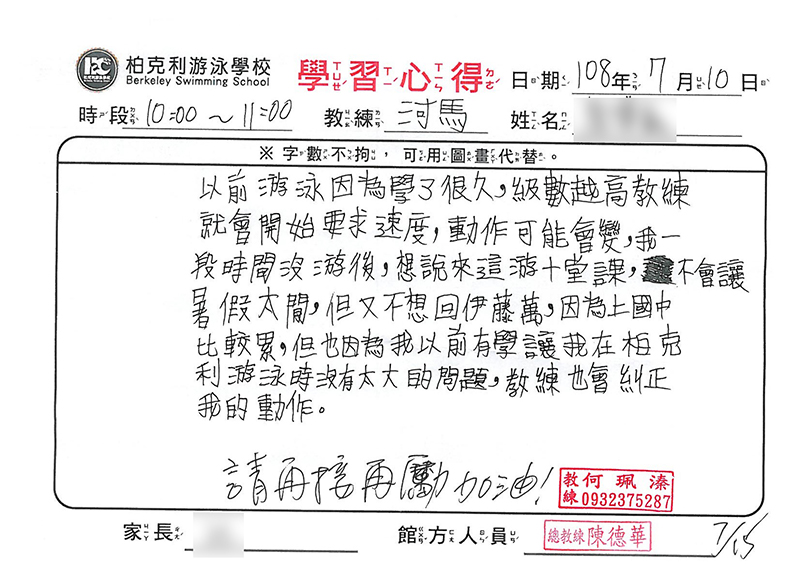 柏克利游泳學校
Berkeley Swimming School
學習心得 日期 108年7月10日
時段 10:00～11:00 教練 河馬 姓名
※字數不拘，可用圖畫代替。
以前游泳因為學了很久，級數越高教練
就會開始要求速度，動作可能會變，我一
段時間沒游後，想說來這游十堂課，不會讓
暑假太閒，但又不想回伊藤萬，因為上國中
比較累，但也因為我以前有學讓我在柏克
利游泳時沒有太大的問題，教練也會糾正
我的動作。
請再接再勵加油！
教練 何珮溱 0932375287
家長 館方人員 總教練 陳德華 7/15